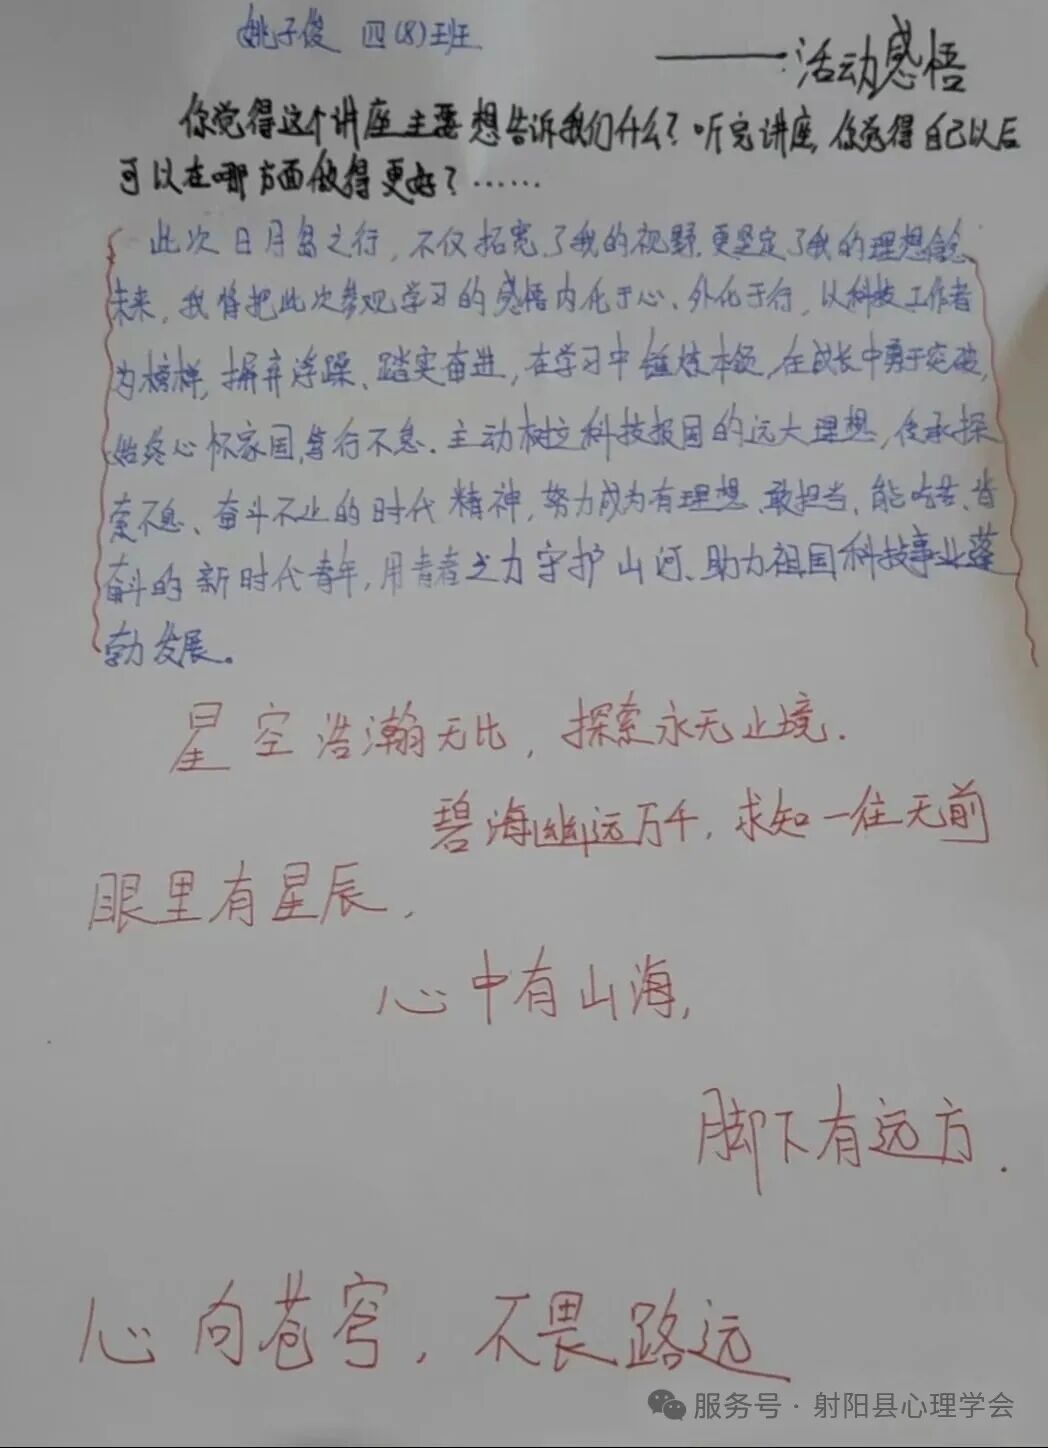 姚子俊 四(8)班
——活动感悟
你觉得这个讲座主要想告诉我们什么?听完讲座,你觉得自己以后
可以在哪方面做得更好?……
此次日月岛之行,不仅拓宽了我的视野,更坚定了我的理想信念
未来,我将把此次参观学习的感悟内化于心、外化于行,以科技工作者
为榜样,摒弃浮躁、踏实奋进,在学习中锤炼本领,在成长中勇于突破,
始终心怀家国,笃行不怠.主动树立科技报国的远大理想,传承探
索不息、奋斗不止的时代精神,努力成为有理想、敢担当、能吃苦、肯
奋斗的新时代青年,用青春之力守护山河、助力祖国科技事业蓬
勃发展。
星空浩瀚无比,探索永无止境.
碧海幽远万千,求知一往无前
眼里有星辰,
心中有山海,
脚下有远方.
心向苍穹,不畏路远
服务号·射阳县心理学会